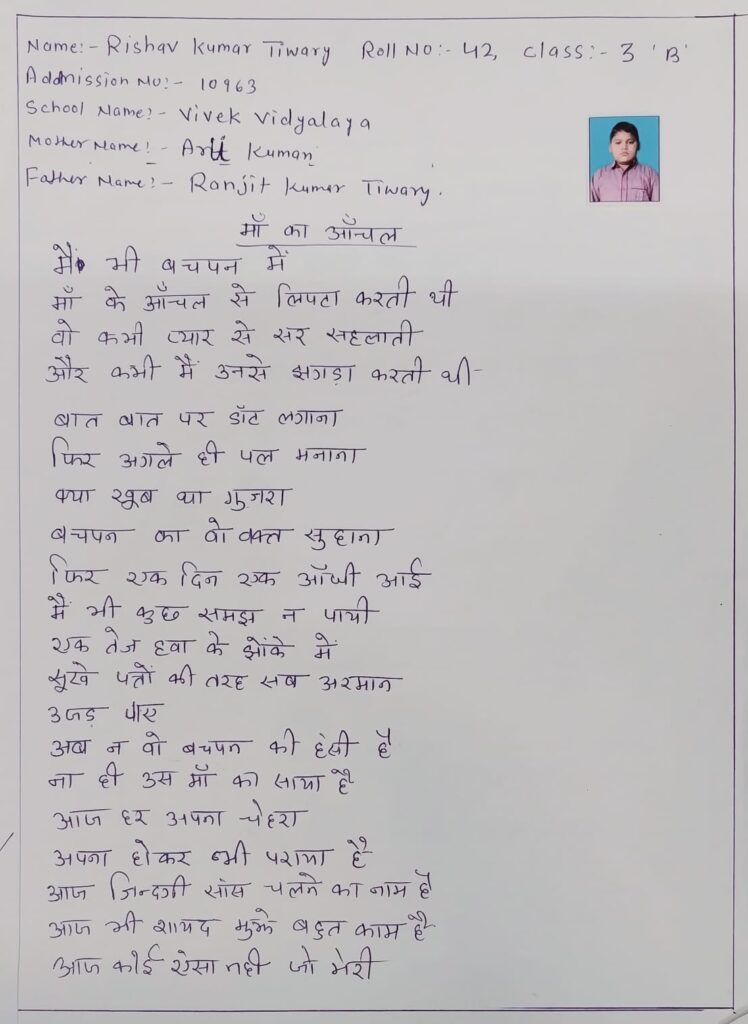 Name:- Rishav Kumar Tiwary Roll No:- 42, Class:- 3 'B'
Addmission No:- 10963
School Name:- Vivek Vidyalaya
Mother Name:- Arti Kumari
Father Name:- Ranjit Kumar Tiwary.
माँ का आँचल
मैं भी बचपन में
माँ के आँचल से लिपटा करती थी
वो कभी प्यार से सर सहलाती
और कभी मैं उनसे झगड़ा करती थी
बात बात पर डॉट लगाना
फिर अगले ही पल मनाना
क्या खूब था गुजरा
बचपन का वो वक्त सुहाना
फिर एक दिन एक आँधी आई
मैं भी कुछ समझ न पायी
एक तेज हवा के झोंके में
सूखे पत्तों की तरह सब अरमान
उजड़ पाए
अब न वो बचपन की हंसी है
ना ही उस माँ का साया है
आज हर अपना चेहरा
अपना होकर भी पराया है
आज जिन्दगी सांस चलने का नाम है
आज भी शायद मुझे बहुत काम है
आज कोई ऐसा नही जो मेरी